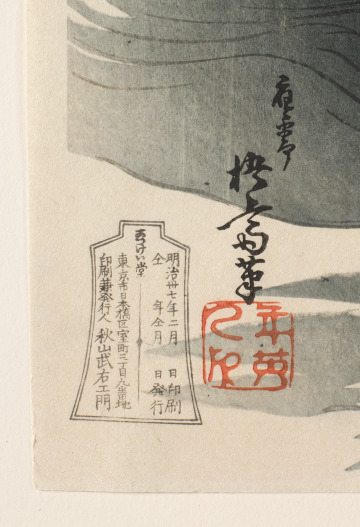 應需
梧斎筆
年英
之印
明治卅七年二月 日印刷
仝 年仝月 日發行
こつけい堂
東京市日本橋区室町三丁目九番地
印刷兼發行人 秋山武右エ門